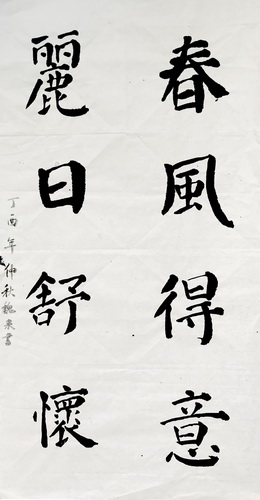 春風得意
麗日舒懷
丁酉年仲秋魏來書